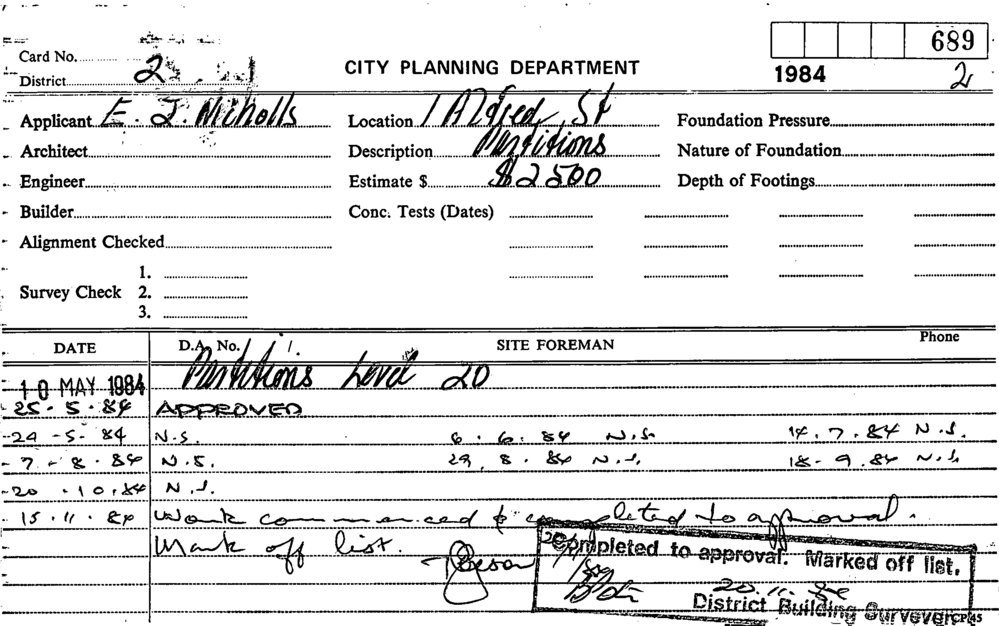 689
Card No.
District 2
CITY PLANNING DEPARTMENT
1984 2
Applicant E. J. Nicholls Location 1 Alfred St Foundation Pressure
Architect Description Partitions Nature of Foundation
Engineer Estimate $ $2500 Depth of Footings
Builder Conc. Tests (Dates)
Alignment Checked
1.
Survey Check 2.
3.
DATE D.A. No. SITE FOREMAN Phone
10 MAY 1984 Partitions Level 20
25.5.84 APPROVED
29-5-84 N.S. 6.6.84 N.S. 14.7.84 N.S.
7-8-84 N.S. 29.8.84 N.S. 18-9.84 N.S.
20.10.84 N.S.
15.11.84 Work commenced & completed to approval.
Mark off list.
Completed to approval. Marked off list.
20.11.84
District Building Surveyor CP45